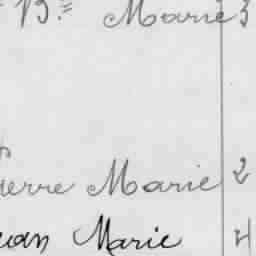 B.se Marie 3
ierre Marie 2
ean Marie 4